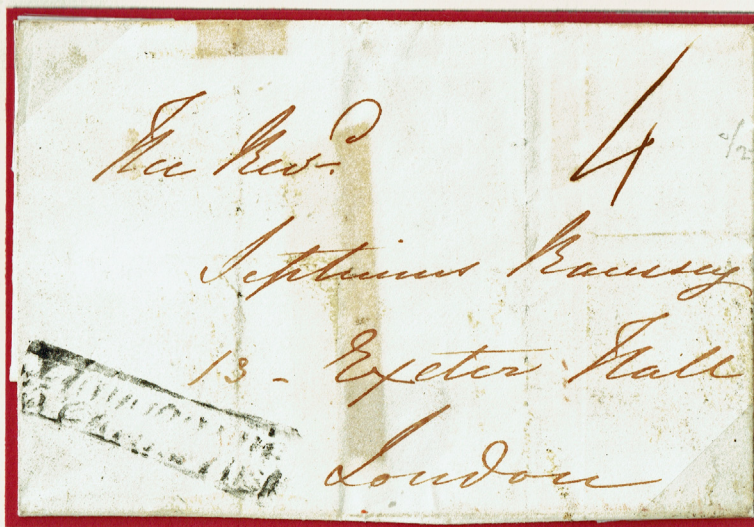 The Revd. 4
Septimus Ramsey
13 - Exeter Hall
London